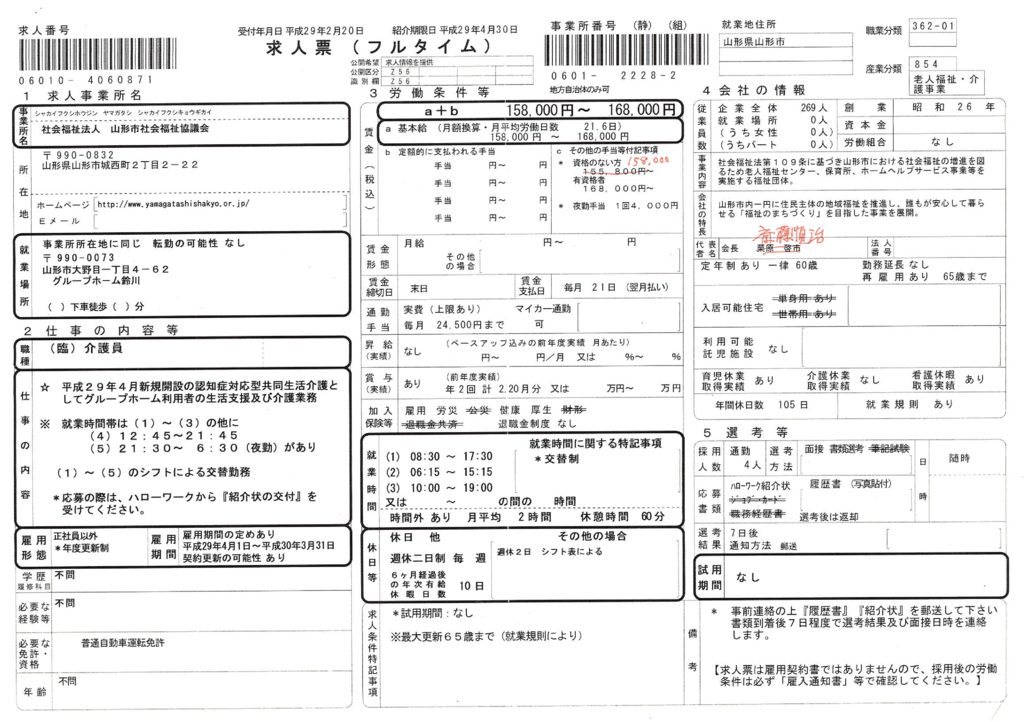 求人番号
06010- 4060871
受付年月日 平成29年2月20日 紹介期限日 平成29年4月30日
求人票（フルタイム）
公開希望 求人情報を提供
公開区分 Z56
識別欄 Z56
事業所番号 （静）（組）
0601- 2228-2
地方自治体のみ可
就業地住所
山形県山形市
職業分類 362-01
産業分類 854
老人福祉・介護事業
1 求人事業所名
事業所名
シャカイフクシホウジン ヤマガタシ シャカイフクシキョウギカイ
社会福祉法人 山形市社会福祉協議会
所在地
〒990-0832
山形県山形市城西町２丁目２－２２
ホームページ http://www.yamagatashishakyo.or.jp/
Ｅメール
就業場所
事業所所在地に同じ 転勤の可能性 なし
〒990-0073
山形市大野目一丁目４－６２
グループホーム鈴川
（ ）下車徒歩（ ）分
2 仕事の内容等
職種
（臨）介護員
仕事の内容
☆ 平成２９年４月新規開設の認知症対応型共同生活介護と
してグループホーム利用者の生活支援及び介護業務
※ 就業時間帯は（１）～（３）の他に
（４）１２：４５～２１：４５
（５）２１：３０～ ６：３０（夜勤）があり
（１）～（５）のシフトによる交替勤務
*応募の際は、ハローワークから『紹介状の交付』を
受けてください。
雇用形態
正社員以外
*年度更新制
雇用期間
雇用期間の定めあり
平成29年4月1日～平成30年3月31日
契約更新の可能性 あり
学歴
履修科目
不問
必要な経験等
不問
必要な免許・資格
普通自動車運転免許
年齢
不問
3 労働条件等
賃金（税込）
a＋b 158,000円～ 168,000円
a 基本給 （月額換算・月平均労働日数 21.6日）
158,000円 ～ 168,000円
b 定額的に支払われる手当
手当 円～ 円
手当 円～ 円
手当 円～ 円
手当 円～ 円
c その他の手当等付記事項
* 資格のない方 158,000
155,800円～
有資格者
168,000円～
* 夜勤手当 １回４，０００円
賃金形態
月給 円～ 円
その他の場合
賃金締切日
末日
賃金支払日
毎月 21日 （翌月払い）
通勤手当
実費（上限あり） マイカー通勤
毎月 24,500円まで 可
昇給（実績）
なし
（ベースアップ込みの前年度実績 月あたり）
円～ 円／月 又は %～ %
賞与（実績）
あり
（前年度実績）
年２回 計 2.20月分 又は 万円～ 万円
加入保険等
雇用 労災 公災 健康 厚生 財形
退職金共済 退職金制度 なし
就業時間
就業時間に関する特記事項
*交替制
(1) 08:30 ～ 17:30
(2) 06:15 ～ 15:15
(3) 10:00 ～ 19:00
又は ～ の間の 時間
時間外 あり 月平均 ２時間 休憩時間 60分
休日等
休日 他
週休二日制 毎 週
６ヶ月経過後の年次有給休暇日数 10日
その他の場合
週休２日 シフト表による
求人条件特記事項
*試用期間：なし
※最大更新６５歳まで（就業規則により）
4 会社の情報
従業員数
企業全体 269人
就業場所 0人
（うち女性 0人
（うちパート 0人
創業 昭和 26年
資本金
労働組合 なし
事業内容
社会福祉法第１０９条に基づき山形市における社会福祉の増進を図
るため老人福祉センター、保育所、ホームヘルプサービス事業等を
実施する福祉団体。
会社の特長
山形市内一円に住民主体の地域福祉を推進し、誰もが安心して暮ら
せる「福祉のまちづくり」を目指した事業を展開。
代表者名
会長 齋藤順治
栗原 啓市
法人番号
定年制 あり 一律 60歳 勤務延長 なし
再雇用 あり 65歳まで
入居可能住宅
単身用 あり
世帯用 あり
利用可能託児施設
なし
育児休業取得実績 あり
介護休業取得実績 なし
看護休暇取得実績 あり
年間休日数 105日
就業規則 あり
5 選考等
採用人数
通勤
4人
選考方法
面接 書類選考 筆記試験
日時
随時
応募書類
ﾊﾛｰﾜｰｸ紹介状 履歴書 （写真貼付）
ｼﾞｮﾌﾞ・ｶｰﾄﾞ
職務経歴書 選考後は返却
選考結果
７日後
通知方法 郵送
試用期間
なし
備考
* 事前連絡の上『履歴書』『紹介状』を郵送して下さい
書類到着後７日程度で選考結果及び面接日時を連絡
します。
【求人票は雇用契約書ではありませんので、採用後の労働
条件は必ず「雇入通知書」等で確認してください。】